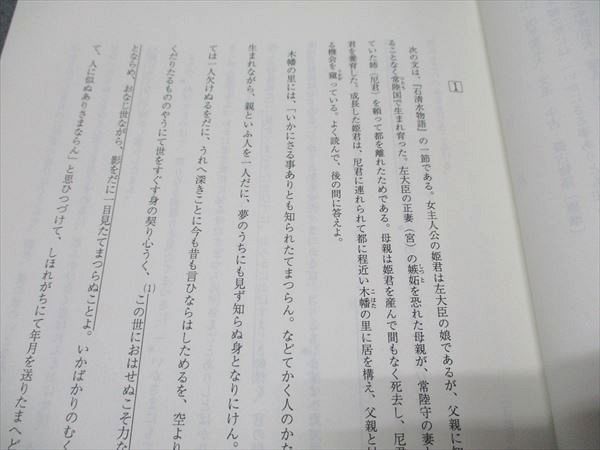 1
次の文は、『石清水物語』の一節である。女主人公の姫君は左大臣の娘であるが、父親に知
ることなく常陸国で生まれ育った。左大臣の正妻（宮）の嫉妬を恐れた母親が、常陸守の妻と
ていた姉（尼君）を頼って都を離れたためである。母親は姫君を産んで間もなく死去し、尼君
君を養育した。成長した姫君は、尼君に連れられて都に程近い木幡の里に居を構え、父親と
る機会を窺っている。よく読んで、後の問に答えよ。
木幡の里には、「いかにさる事ありとも知られたてまつらん。などてかく人のかた
生まれながら、親といふ人を一人だに、夢のうちにも見ず知らぬ身となりにけん。
ては一人欠けぬるをだに、うれへ深きことに今も昔も言ひならはしためるを、空より
くだりたるもののやうにて世をすぐす身の契り心うく、(1)この世におはせぬこそ力な
とならめ、おなじ世ながら、影をだに一目見たてまつらぬことよ。いかばかりのむく
て、人に似ぬありさまならん」と思ひつづけて、しほれがちにて年月を送りたまへど